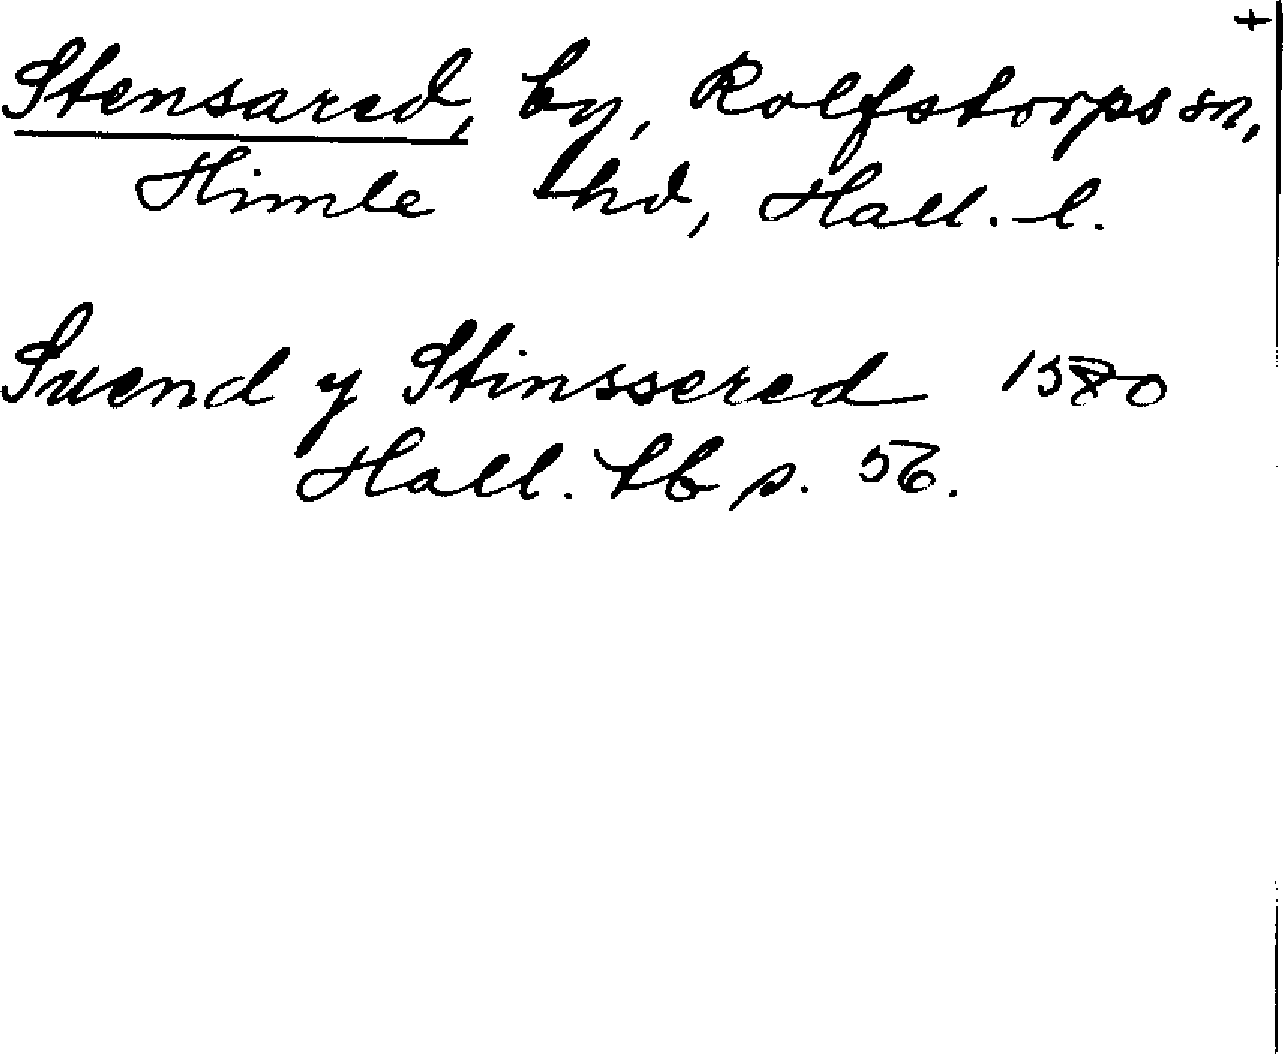 +
Stensared, by, Rolfstorps sn,
Himle hd, Hall. l.
Suend y Stinssered 1580
Hall. tb p. 56.